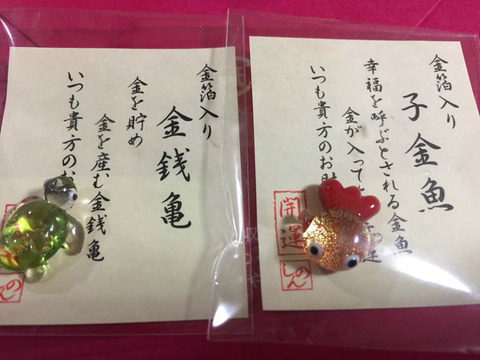 金箔入り
子金魚
幸福を呼ぶとされる金魚
金が入って
いつも貴方のお財
開運
のん
金箔入り
金銭亀
金を貯め
金を産む金銭亀
いつも貴方のお
のん